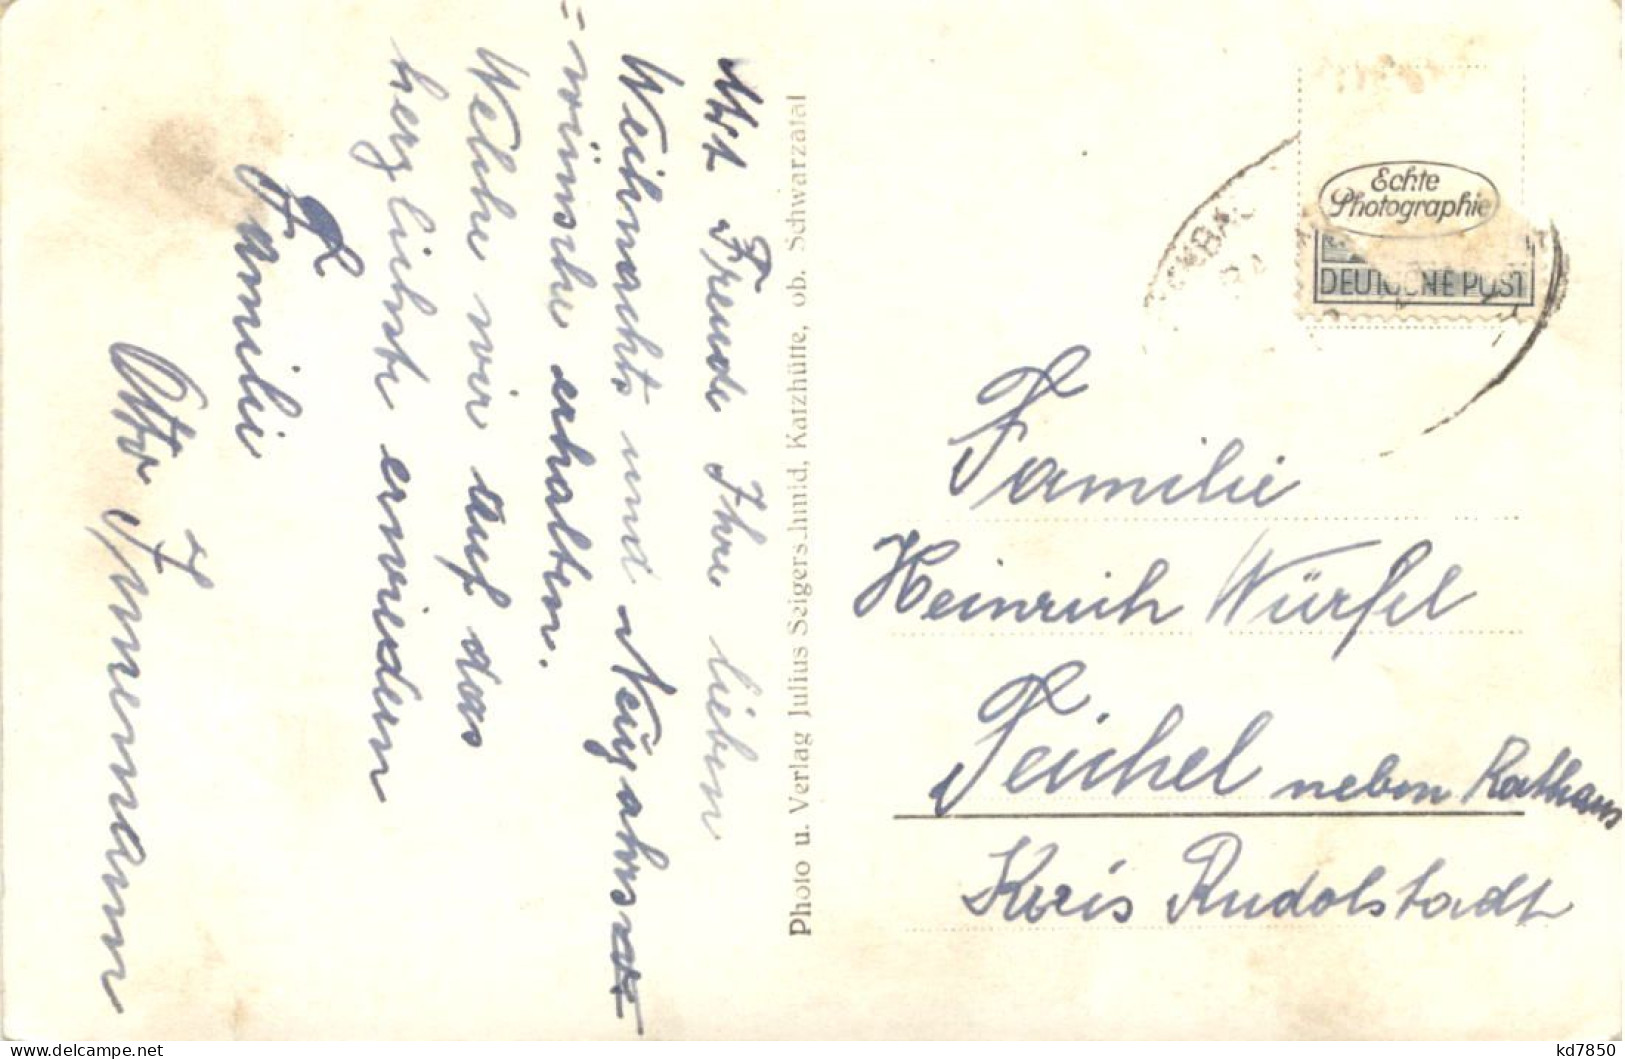 Mit Freude Ihre lieben
Weihnachts und Neujahrs
=wünsche erhalten.
Welche wir auf das
herzlichste erwiedern
Familie
Otto Jünemann
Photo u. Verlag Julius Seigerschmid, Katzhütte, ob. Schwarzatal
Echte
Photographie
DEUTSCHE POST
Familie
Heinrich Würfel
Teichel neben Rathaus
Kreis Rudolstadt
kd7850
delcampe.net